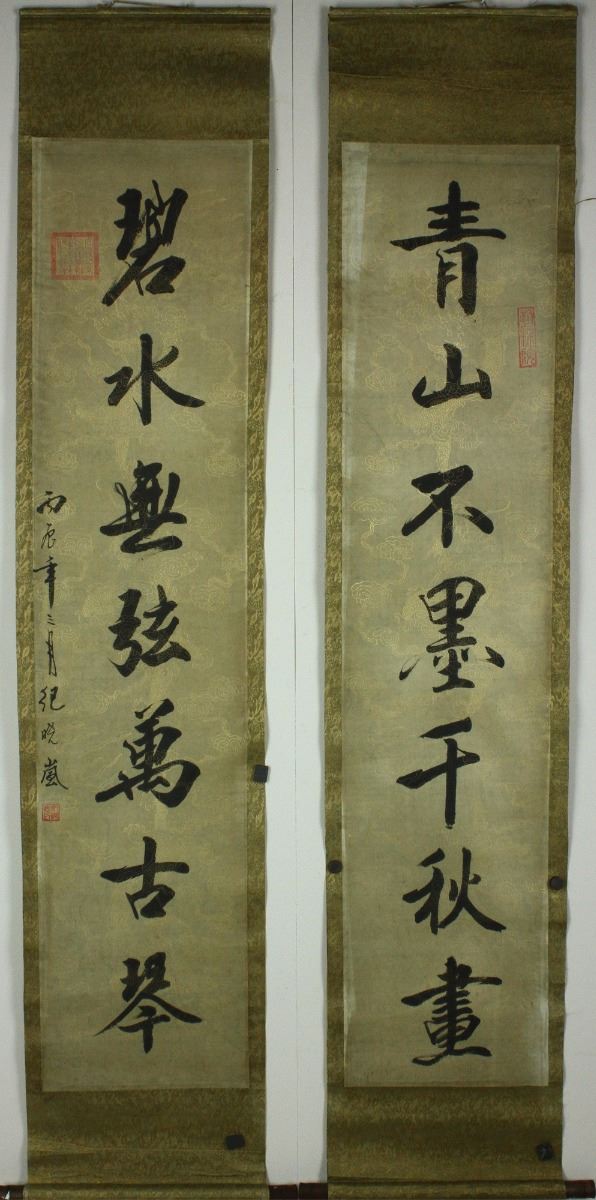 青山不墨千秋畫
碧水無弦萬古琴
丙辰年三月紀晓嵐